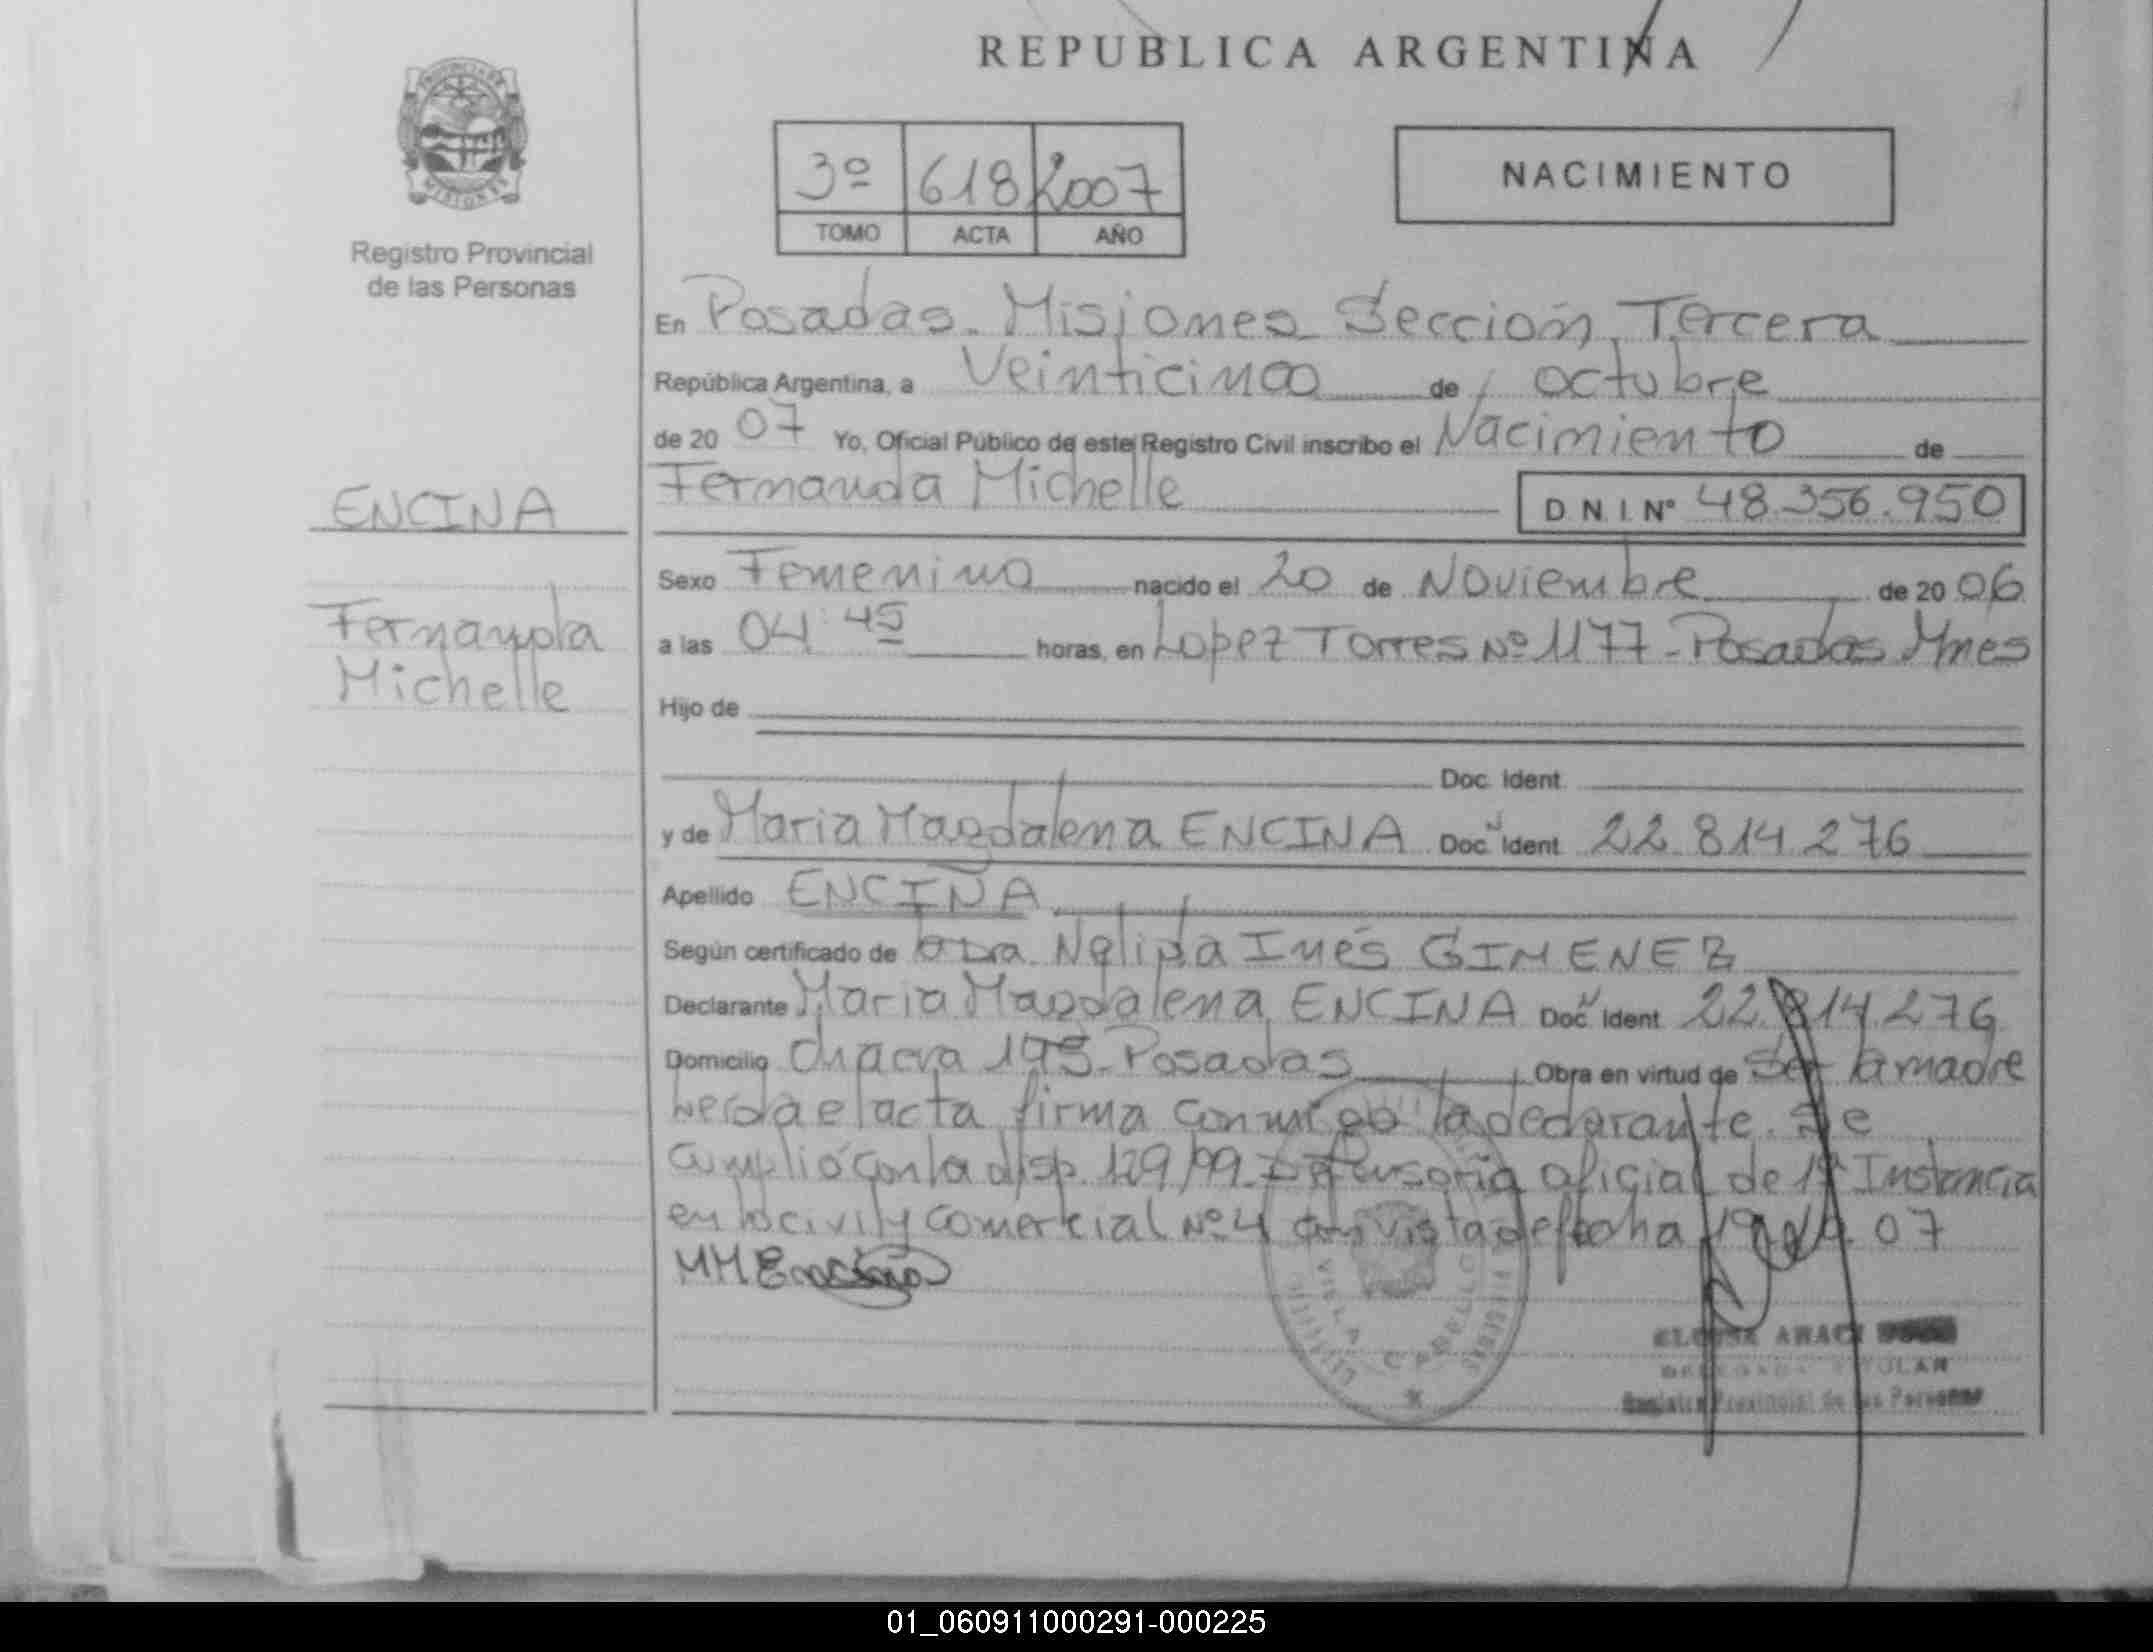 REPUBLICA ARGENTINA
PROVINCIA DE MISIONES
Registro Provincial
de las Personas
3º 618 2007
TOMO ACTA AÑO
NACIMIENTO
En Posadas. Misiones Sección Tercera
República Argentina, a Veinticinco de octubre
de 20 07 Yo, Oficial Público de este Registro Civil inscribo el Nacimiento de
Fernanda Michelle D.N.I. Nº 48.356.950
ENCINA
Fernanda
Michelle
Sexo Femenino nacido el 20 de Noviembre de 20 06
a las 04:45 horas, en Lopez Torres Nº 1177 - Posadas Mnes
Hijo de
Doc. Ident.
y de Maria Magdalena ENCINA Doc. Ident. 22.814.276
Apellido ENCINA
Según certificado de la Dra. Nelida Inés GIMENEZ
Declarante Maria Magdalena ENCINA Doc. Ident. 22.814.276
Domicilio Chacra 195 - Posadas Obra en virtud de Ser la madre
Leida el acta firma conmigo la declarante. Se
Cumplió con la disp. 129/99 - Defensoria oficial de 1ª Instancia
en lo civil y comercial Nº 4 con vista de fecha 19 07
MM Encina
VILLA CABELLO
ARACI
DELEGADA TITULAR
Registro Provincial de las Personas
01_060911000291-000225